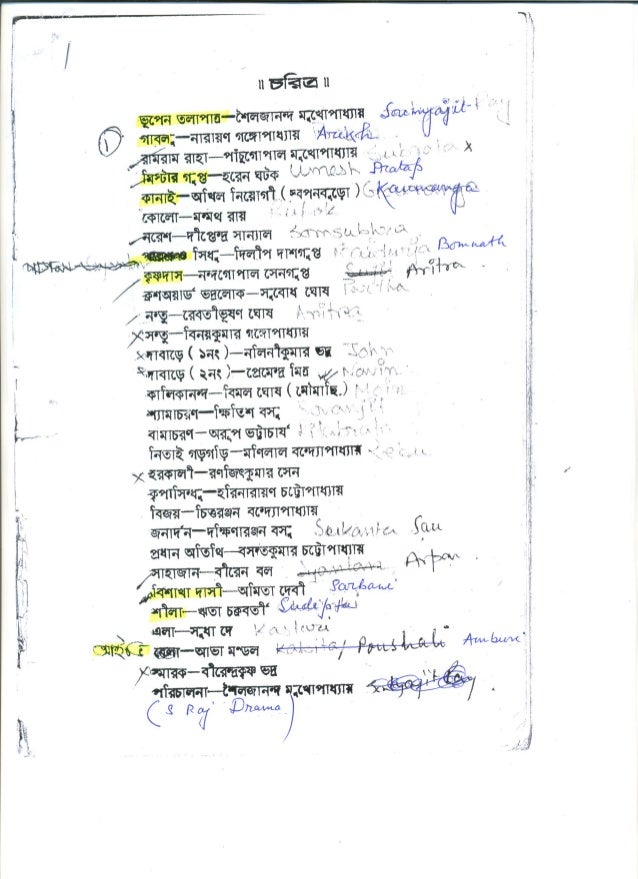 1
॥ চরিত্র ॥
ভূপেন তলাপাত্র—শৈলজানন্দ মুখোপাধ্যায়
1 গাবলু—নারায়ণ গঙ্গোপাধ্যায়
রামরাম রাহা—পাঁচুগোপাল মুখোপাধ্যায় x
মিস্টার গুপ্ত—হরেন ঘটক Umesh Pratap
কানাই—অখিল নিয়োগী (স্বপনবুড়ো)
কোলো—মন্মথ রায়
নরেশ—দীপ্তেন্দ্র সান্যাল Somsubhra
সিধু—দিলীপ দাশগুপ্ত Bomnath
কৃষ্ণদাস—নন্দগোপাল সেনগুপ্ত Aritra
ক্রশওয়ার্ড ভদ্রলোক—সুবোধ ঘোষ Partha
নন্তু—রেবতীভূষণ ঘোষ Aritra
x সন্তু—বিনয়কুমার গঙ্গোপাধ্যায়
x দাবাড়ে (১নং)—নলিনীকুমার ভদ্র John
x দাবাড়ে (২নং)—প্রেমেন্দ্র মিত্র Navin
কালিকানন্দ—বিমল ঘোষ (মৌমাছি)
শ্যামাচরণ—ক্ষিতিশ বসু
বামাচরণ—অরূপ ভট্টাচার্য
নিতাই গড়গড়ি—মণিলাল বন্দ্যোপাধ্যায় Lebu
x হরকালী—রণজিৎকুমার সেন
কৃপাসিন্ধু—হরিনারায়ণ চট্টোপাধ্যায়
বিজয়—চিত্তরঞ্জন বন্দ্যোপাধ্যায়
জনার্দন—দক্ষিণারঞ্জন বসু Srikanta Sau
প্রধান অতিথি—বসন্তকুমার চট্টোপাধ্যায়
সাহাজান—বীরেন বল Arpan
বিশাখা দাসী—অমিতা দেবী Sarbani
শীলা—ঋতা চক্রবর্তী Sudipta
এলা—সুধা দে Kasturi
বেলা—আভা মণ্ডল Poushali
x স্মারক—বীরেন্দ্রকৃষ্ণ ভদ্র
পরিচালনা—শৈলজানন্দ মুখোপাধ্যায়
(S Raj Drama)